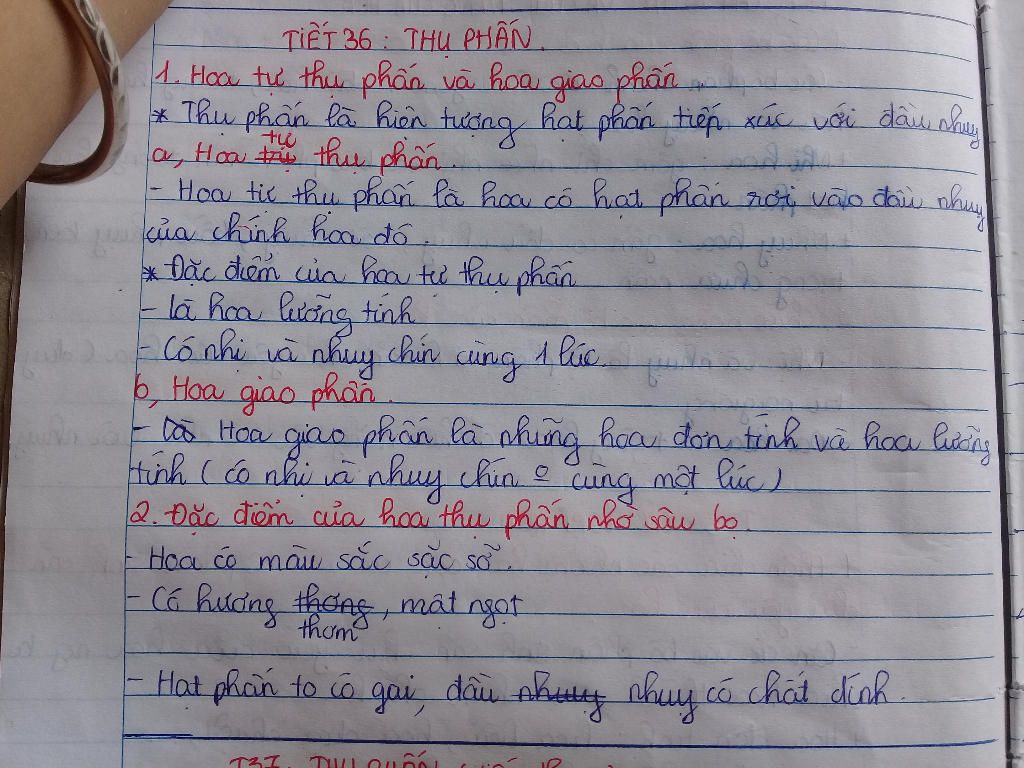 TIẾT 36 : THỤ PHẤN.
1. Hoa tự thụ phấn và hoa giao phấn.
* Thụ phấn là hiện tượng hạt phấn tiếp xúc với đầu nhụy
a, Hoa tự thụ phấn.
- Hoa tự thụ phấn là hoa có hạt phấn rơi vào đầu nhụy
của chính hoa đó.
* Đặc điểm của hoa tự thụ phấn
- là hoa lưỡng tính
- Có nhị và nhụy chín cùng 1 lúc.
b, Hoa giao phấn.
- Hoa giao phấn là những hoa đơn tính và hoa lưỡng
tính ( có nhị và nhụy chín o cùng một lúc )
2. Đặc điểm của hoa thụ phấn nhờ sâu bọ.
- Hoa có màu sắc sặc sỡ.
- Có hương thơm, mật ngọt
- Hạt phấn to có gai, đầu nhụy có chất dính.